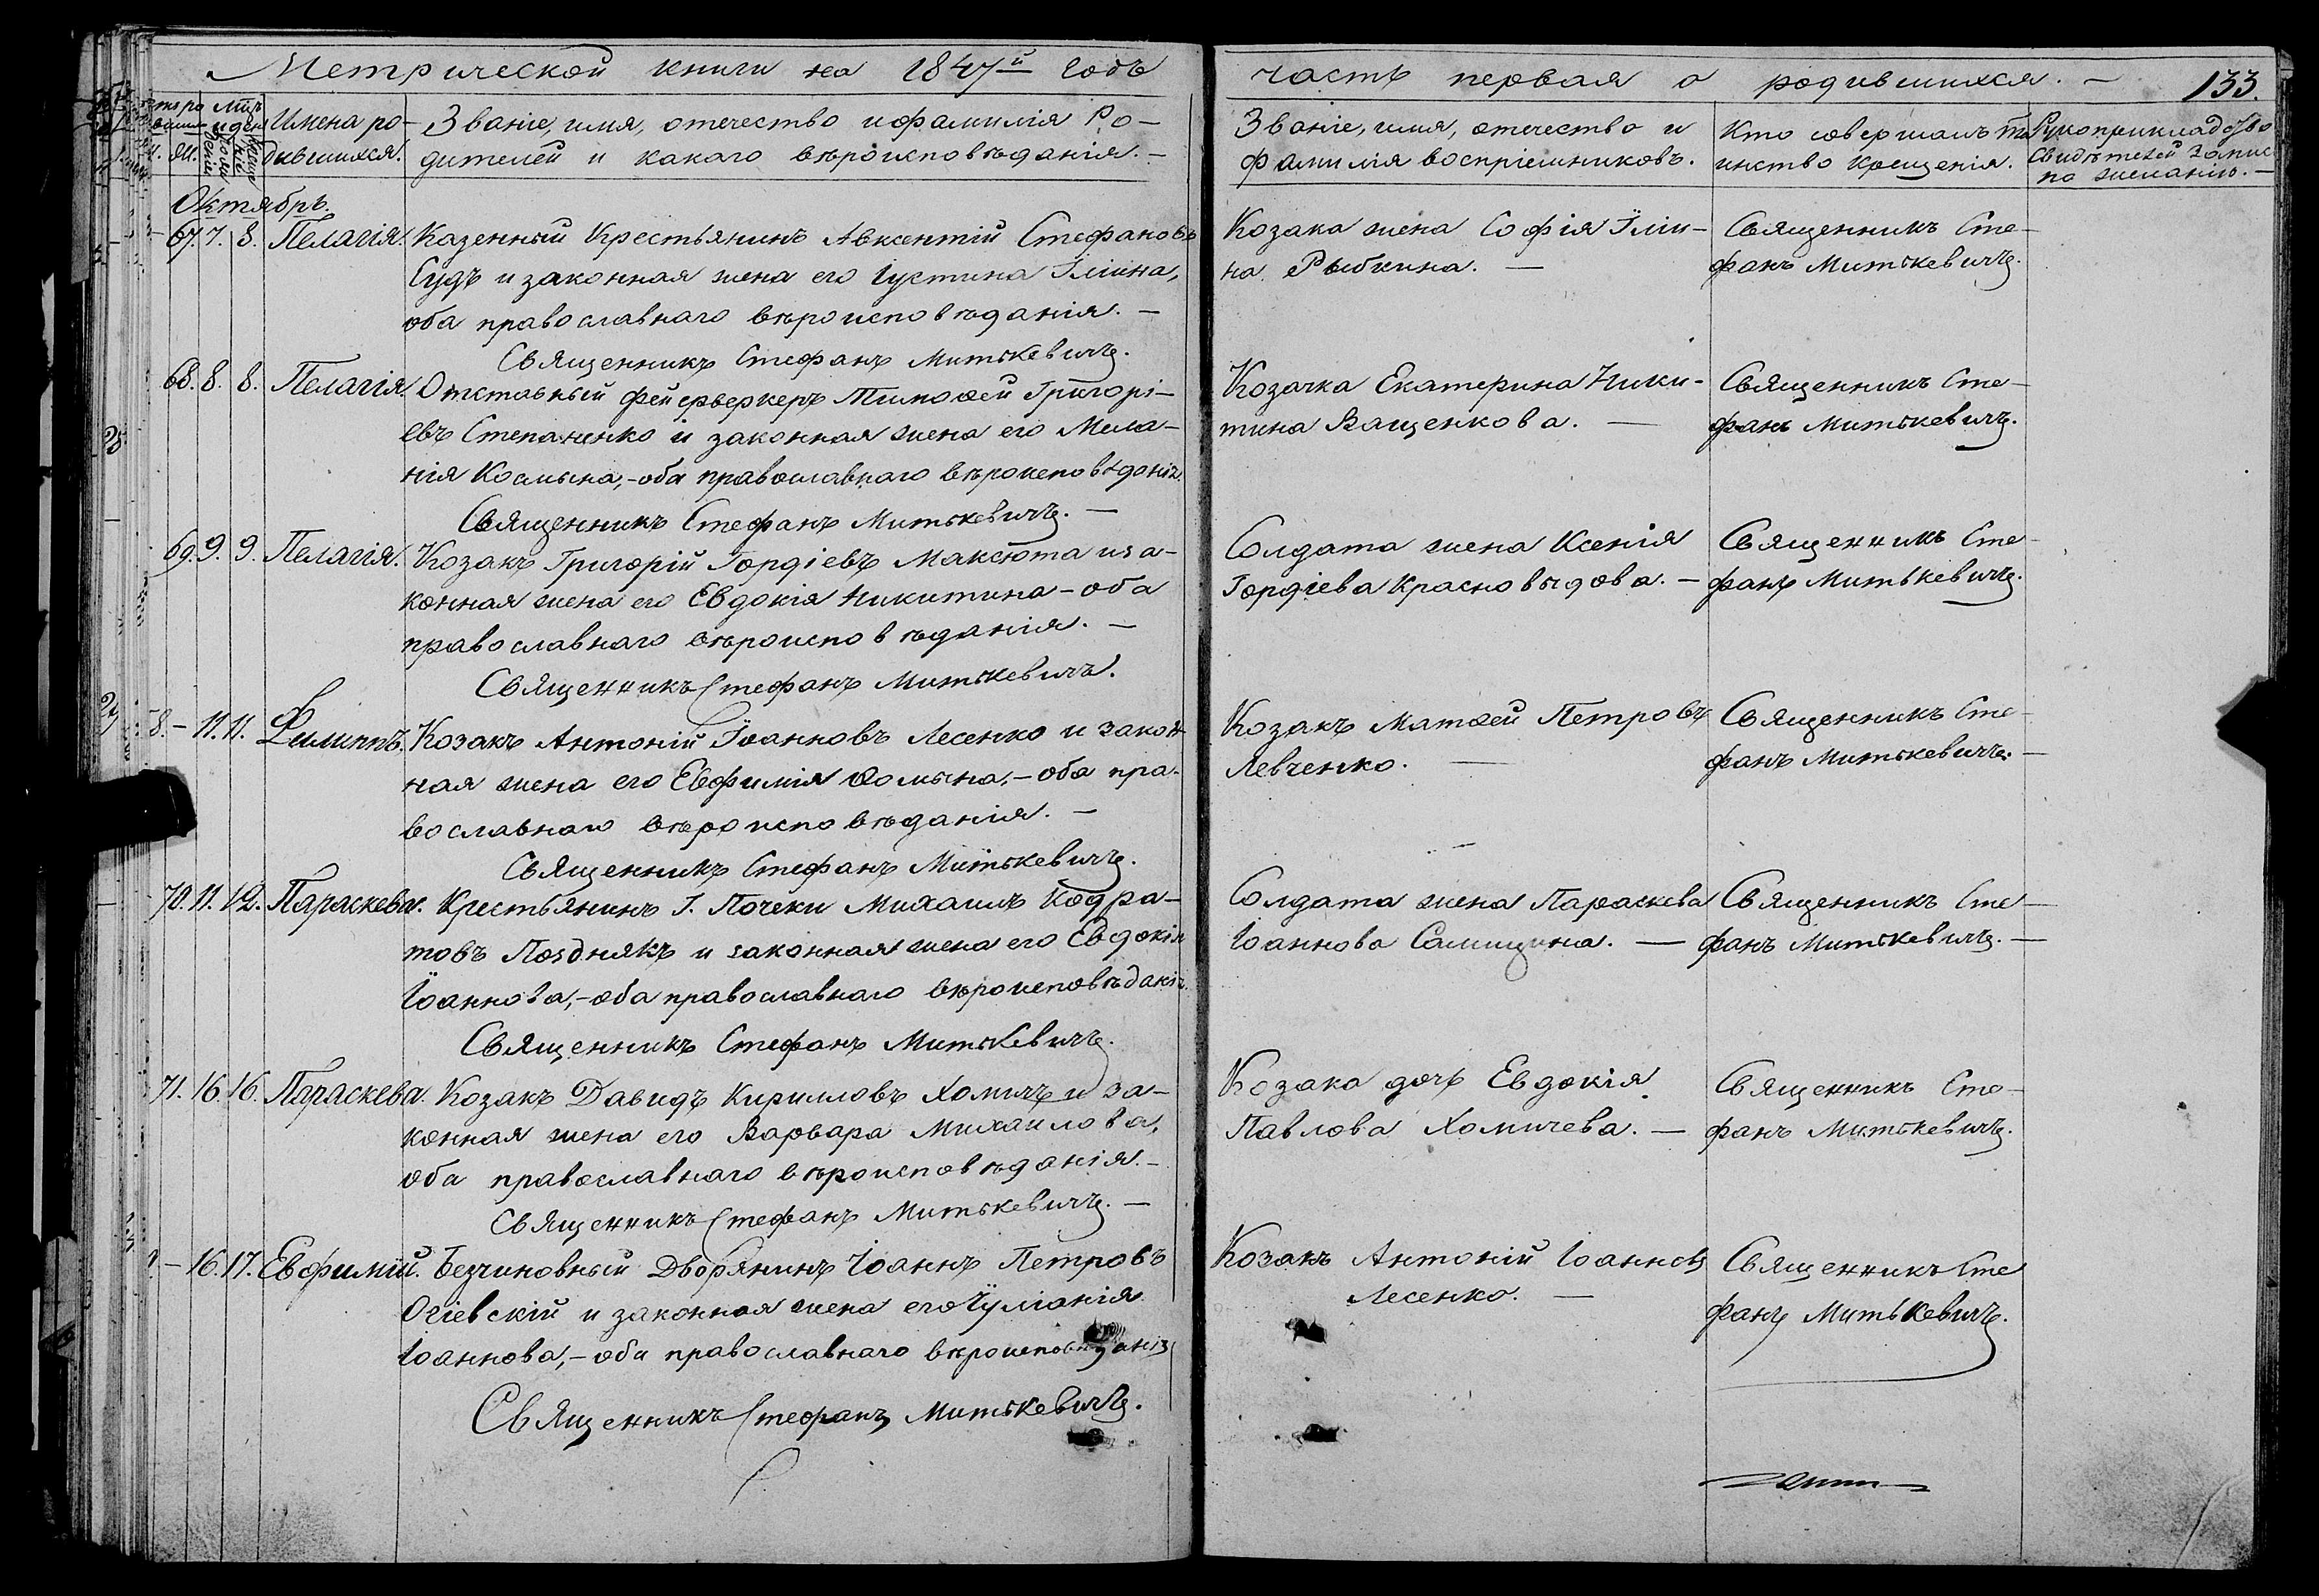 Метрической книги на 1847й годъ
часть первая о родившихся. 133.
Имена ро-
дившихся.
Званіе, имя, отечество и фамилія Ро-
дителей и какого вѣроисповѣданія.
Званіе, имя, отечество и
фамилія воспріемниковъ.
Кто совершалъ та
инство крещенія.
Рукоприкладство
свидѣтелей запис
по желанію.
Октябрь.
67. 7. 8. Пелагія. Казенный Крестьянинъ Авксентій Стефановъ
Судъ и законная жена его Іустина Ілiина,
оба православнаго вѣроисповѣданія. —
Священникъ Стефанъ Митькевичъ.
Козака жена Софія Іліи-
на Рыбкина. —
Священникъ Сте-
фанъ Митькевичъ.
68. 8. 8. Пелагія. Отставный фейерверкеръ Тимоѳей Григорі-
евъ Степаненко и законная жена его Мела-
нія Космына, - оба православнаго вѣроисповѣданія.
Священникъ Стефанъ Митькевичъ. —
Козачка Екатерина Ники-
тина Ващенкова. —
Священникъ Сте-
фанъ Митькевичъ.
69. 9. 9. Пелагія. Козакъ Григорій Гордіевъ Максюта и за-
конная жена его Евдокія Никитина - оба
православнаго вѣроисповѣданія. —
Священникъ Стефанъ Митькевичъ.
Солдата жена Ксенія
Гордіева Красновыдова. —
Священникъ Сте-
фанъ Митькевичъ.
8. — 11. 11. Филиппъ. Козакъ Антоній Іоанновъ Лесенко и закон
ная жена его Евфимія Ѳомына, - оба пра-
вославнаго вѣроисповѣданія. —
Священникъ Стефанъ Митькевичъ.
Козакъ Матѳей Петровъ
Левченко. —
Священникъ Сте-
фанъ Митькевичъ. —
70. 11. 12. Параскева. Крестьянинъ Г. Почеки Михаилъ Кодра-
товъ Позднякъ и законная жена его Евдокія
Іоаннова, - оба православнаго вѣроисповѣданія.
Священникъ Стефанъ Митькевичъ.
Солдата жена Параскева
Іоаннова —
Священникъ Сте —
фанъ Митькевичъ. —
71. 16. 16. Параскева. Козакъ Давидъ Кирилловъ Хомичъ и за-
конная жена его Варвара Михаилова,
оба православнаго вѣроисповѣданія. —
Священникъ Стефанъ Митькевичъ. —
Козака дочь Евдокія
Павлова Хомичева. —
Священникъ Сте-
фанъ Митькевичъ.
— 16. 17. Евфимій. Безчиновный Дворянинъ Іоаннъ Петровъ
Огіевскій и законная жена его Іуліанія
Іоаннова, - оба православнаго вѣроисповѣданія
Священникъ Стефанъ Митькевичъ.
Козакъ Антоній Іоанновъ
Лесенко. —
Священникъ Сте
фанъ Митькевичъ.